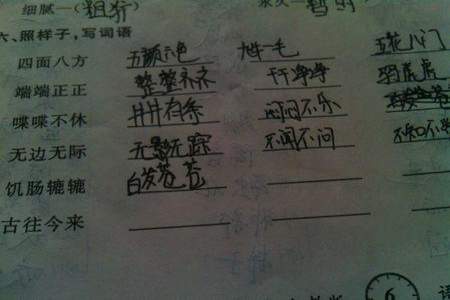 细腻—(粗犷) 永久—(暂时)
六、照样子,写词语
四面八方 五颜六色 九牛一毛 五花八门
端端正正 整整齐齐 干干净净
喋喋不休 井井有条 闷闷不乐
无边无际 无影无踪 不闻不问 不知不
饥肠辘辘 白发苍苍
古往今来
6